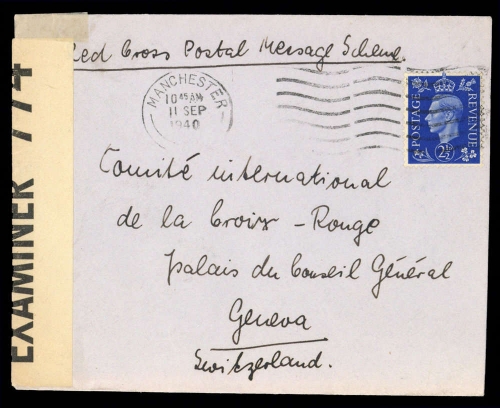 Red Cross Postal Message Scheme.
MANCHESTER
10 45 AM
11 SEP
1940
POSTAGE
REVENUE
2½D
Comité international
de la Croix-Rouge
palais du Conseil Général
Geneva
Switzerland.
EXAMINER 774